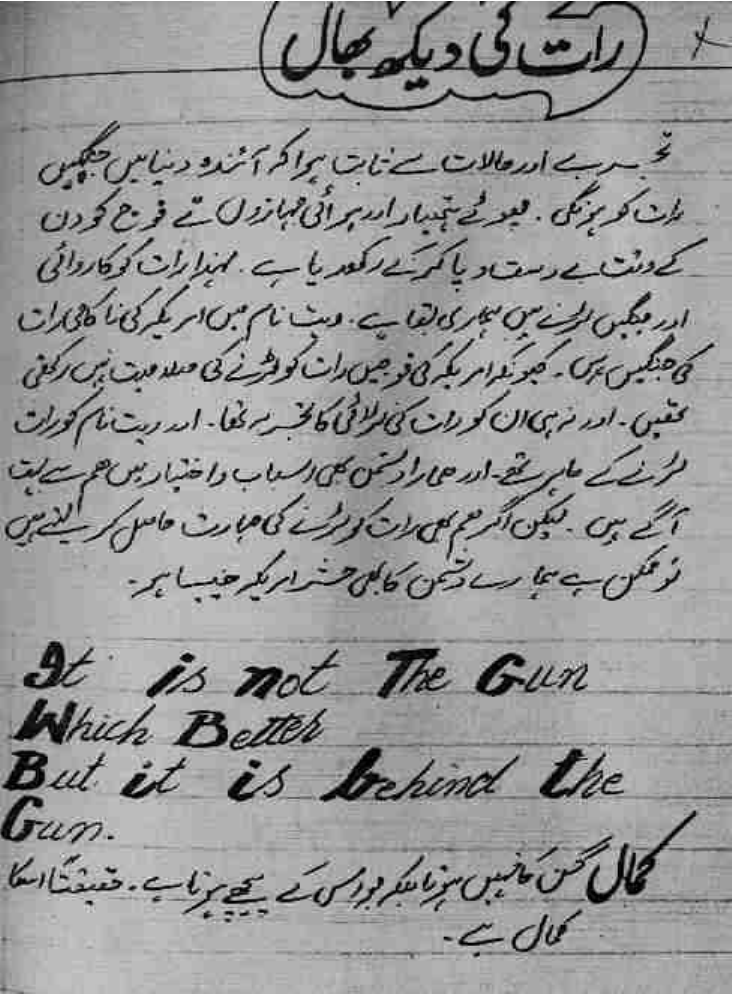 رات کی دیکھ بھال
تجربے اور حالات سے ثابت ہوا کہ آئندہ دنیا میں جنگیں
رات کو ہونگی۔ ہتھیار اور ہوائی جہازوں نے فوج کو دن
کے وقت بے دست و پا کر کے رکھ دیا ہے۔ لہذا رات کو کاروائی
اور جنگیں لڑنے میں ہماری بقا ہے۔ ویت نام میں امریکہ کی ناکامی رات
کی جنگیں ہیں۔ کیونکہ امریکہ کی فوجیں رات کو لڑنے کی صلاحیت نہیں رکھتی
تھیں۔ اور نہ ہی ان کو رات کی لڑائی کا تجربہ تھا۔ اور ویت نام کو رات
لڑنے کے ماہر تھے۔ اور ہمارا دشمن بھی اسباب و اختیار میں ہم سے بہت
آگے ہیں۔ لیکن اگر ہم بھی رات کو لڑنے کی مہارت حاصل کر لیتے ہیں
تو ممکن ہے ہمارے دشمن کا بھی حشر امریکہ جیسا ہو۔
It is not The Gun
Which Better
But it is behind the
Gun.
کمال گن کا نہیں ہوتا بلکہ جو اس کے پیچھے ہوتا ہے۔ حقیقتاً اسکا
کمال ہے۔